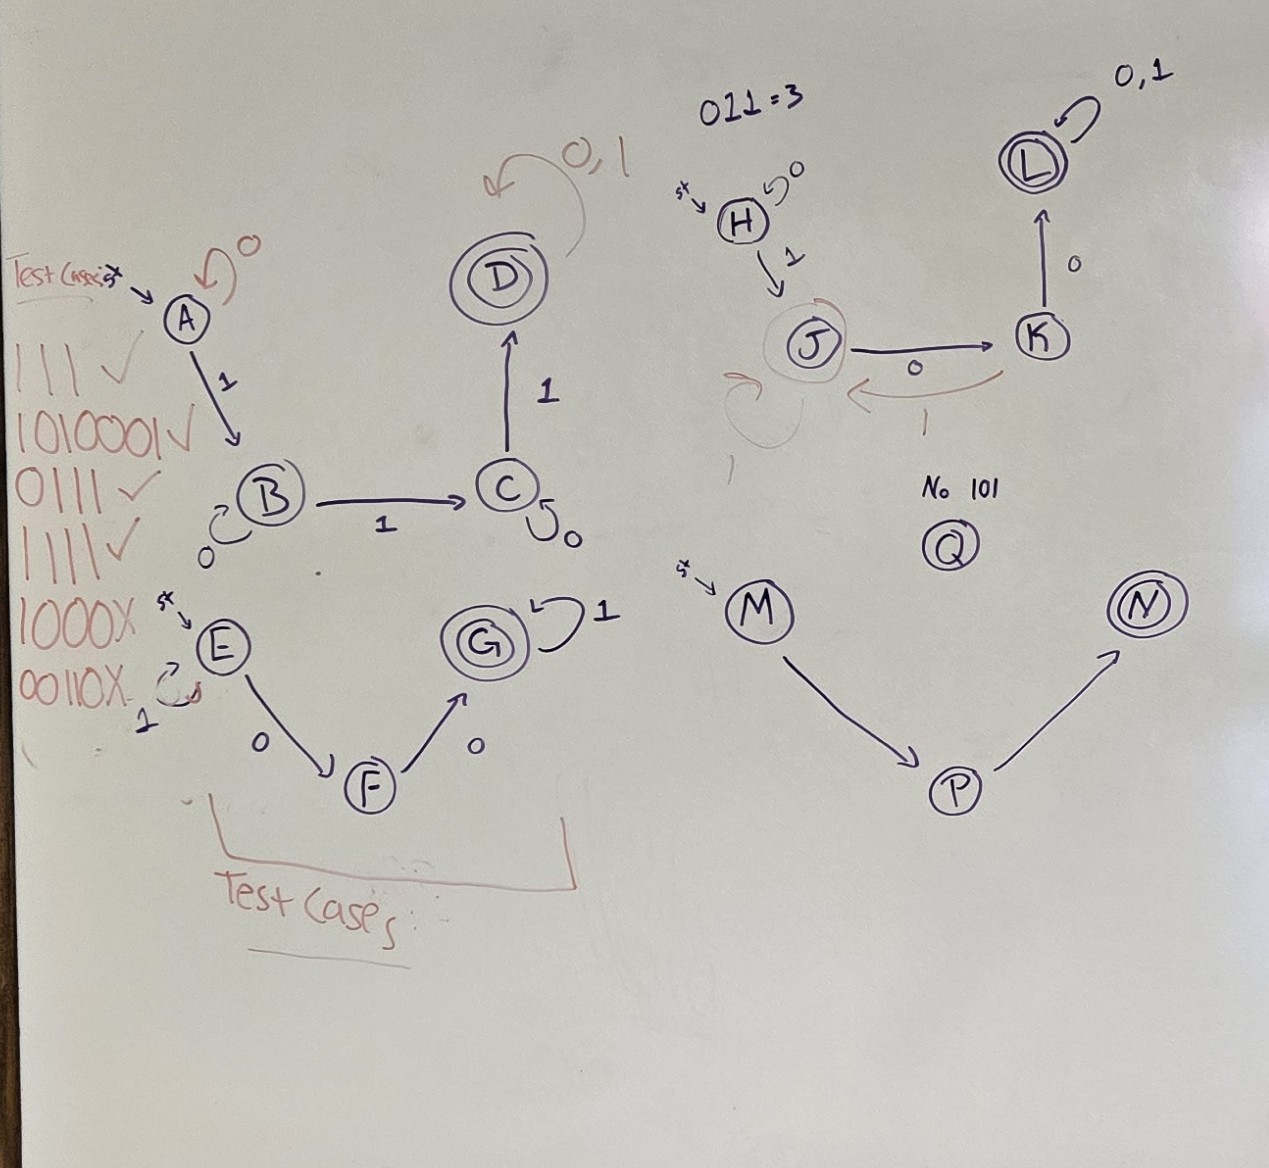 011 = 3
0,1
L
0
K
st
H
0
1
J
0
1
1
0,1
D
1
C
0
Test Cases:
st
A
0
1
B
0
1
111 ✓
1010001 ✓
0111 ✓
1111 ✓
1000X
00110X
st
E
1
0
F
0
G
1
Test Cases:
No 101
Q
st
M
P
N